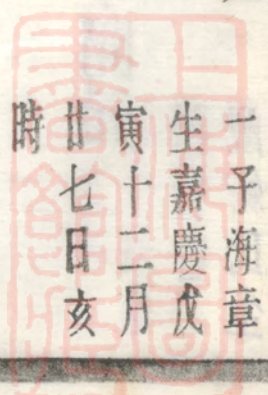 一子海章
生嘉慶戊
寅十二月
廿七日亥
時